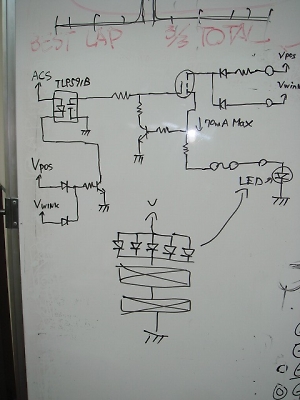 BEST LAP 3/3 TOTAL
ACS
TLP591B
Vpos
Vwink
70mA Max
Vpos
Vwink
LED
V